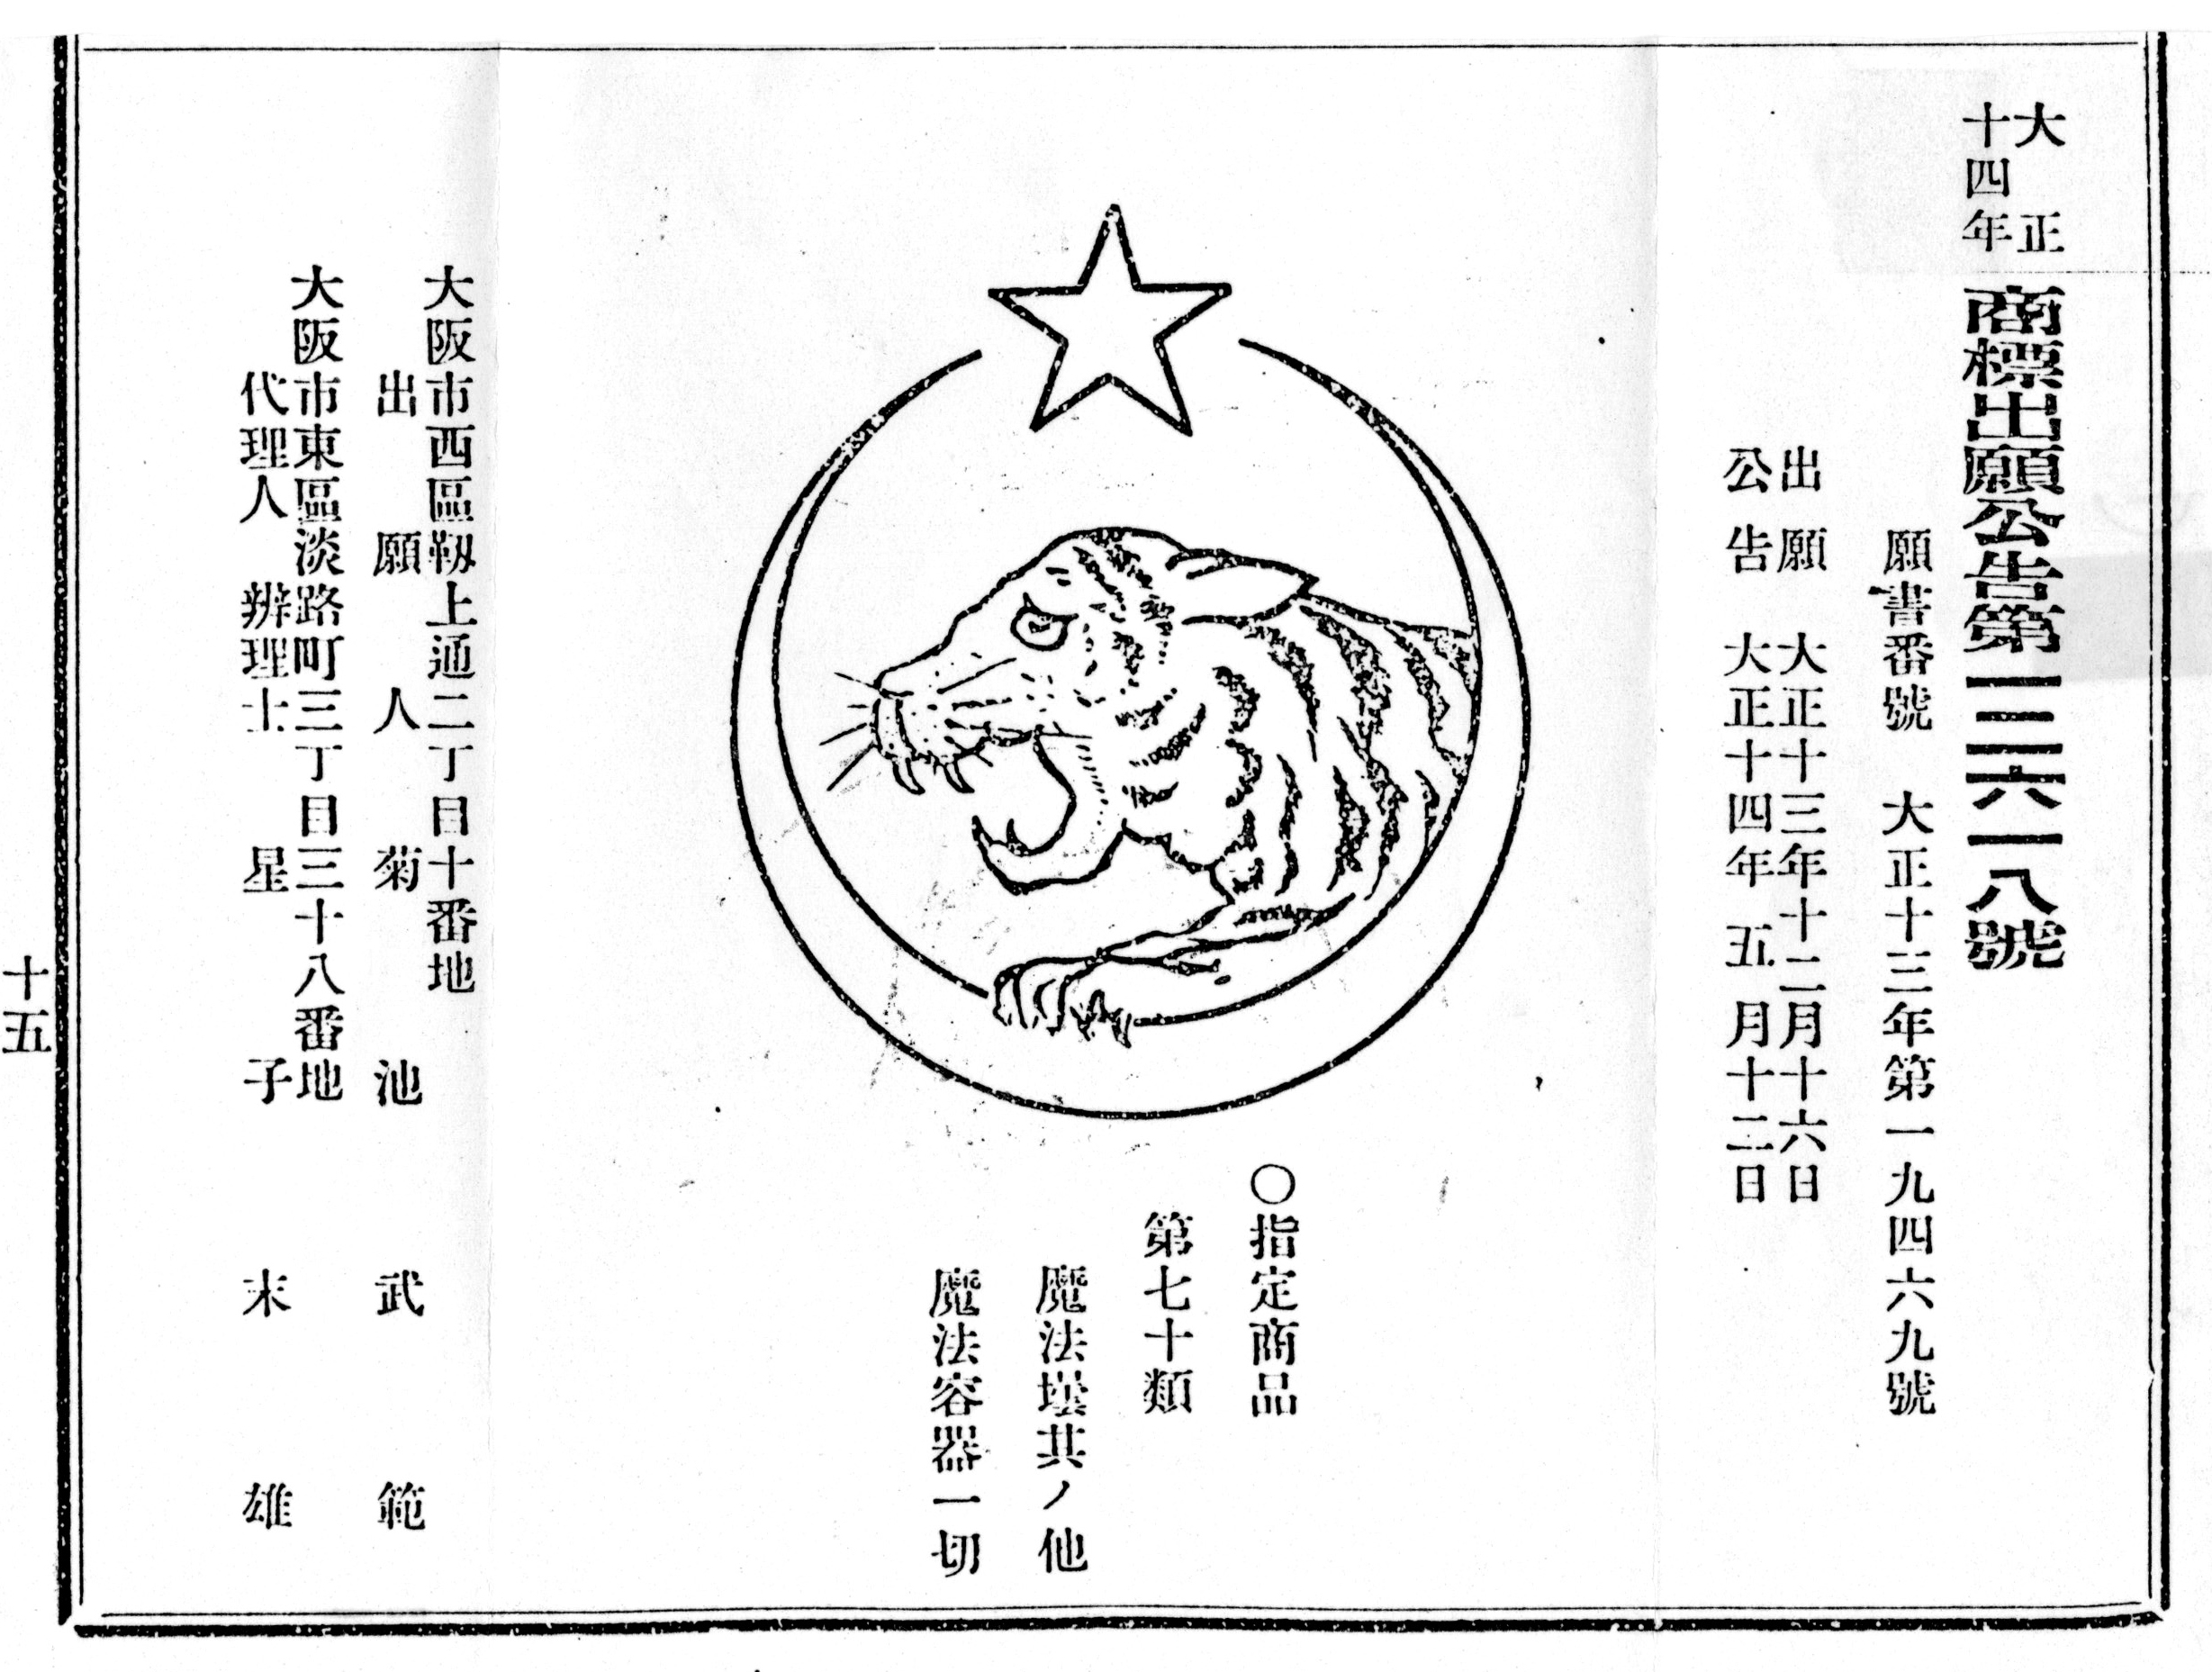 大正
十四年
商標出願公告第一二六一八號
願書番號 大正十三年第一九四六九號
出願 大正十三年十二月十六日
公告 大正十四年五月十二日
〇指定商品
第七十類
魔法壜其ノ他
魔法容器一切
大阪市西區靱上通二丁目十番地
出願人 菊池武範
大阪市東區淡路町三丁目三十八番地
代理人 辨理士 星子末雄
十五